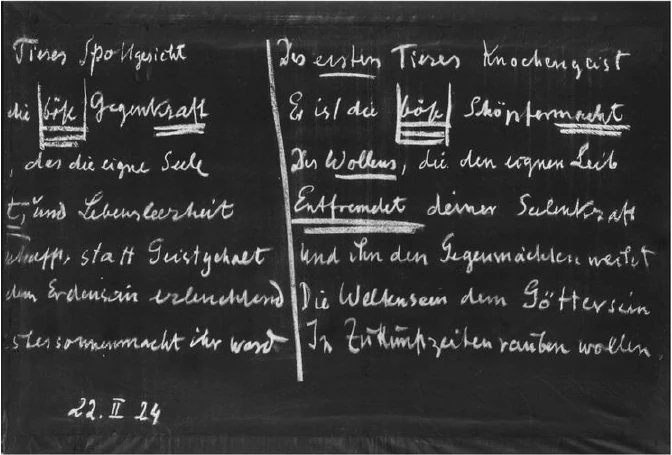 Tieres Spottgesicht
die böse Gegenkraft
, das die eigne Seele
t, und Lebensleerheit
schafft, statt Geistgehalt
dem Erdensein erleuchtend
stessonnenmacht ihr ward
22. II 24
Des ersten Tieres Knochengeist
Er ist die böse Schöpfermacht
Des Wollens, die den eignen Leib
Entfremdet deiner Seelenkraft
Und ihn den Gegenmächten weihet
Die Weltensein dem Göttersein
In Zukunftzeiten rauben wollen.